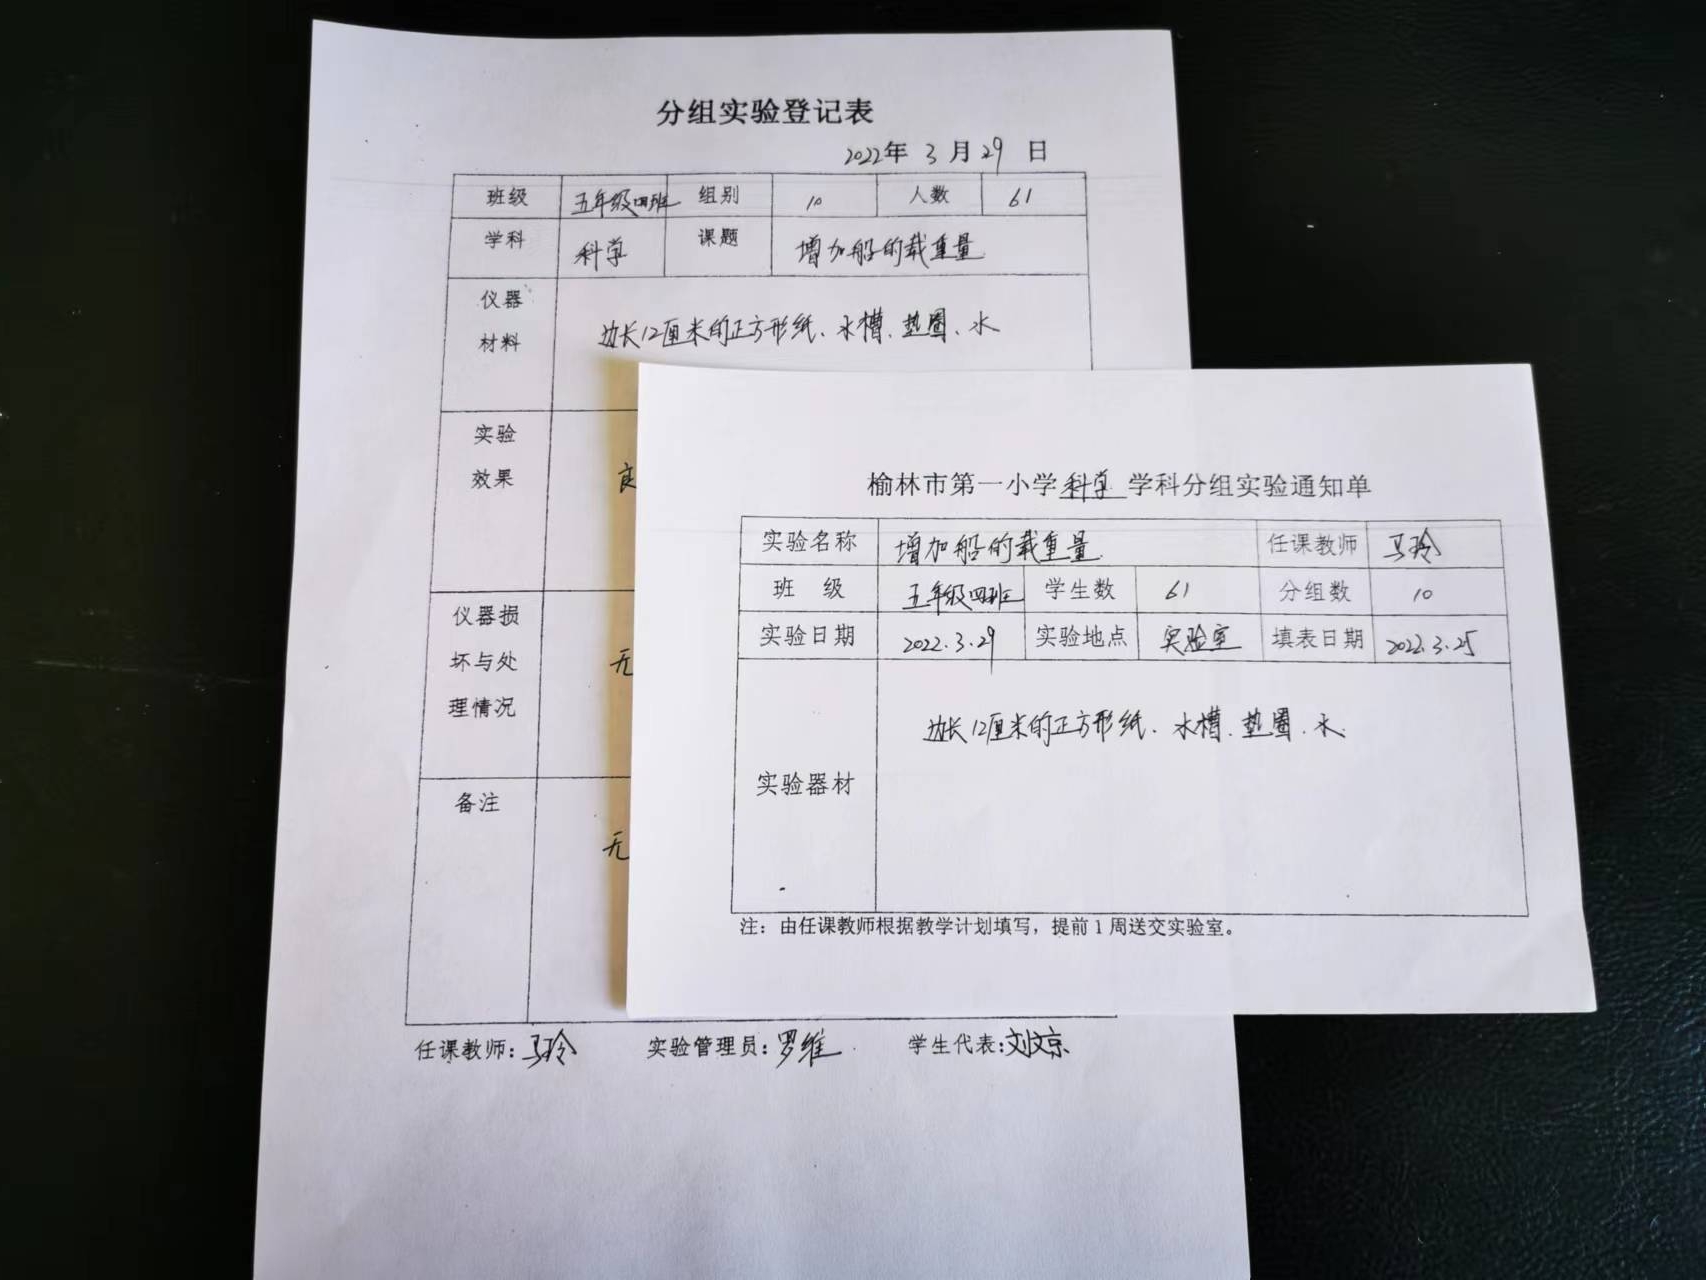 分组实验登记表
2022年 3 月 29 日
班级 五年级四班 组别 10 人数 61
学科 科学 课题 增加船的载重量
仪器
材料
边长12厘米的正方形纸、水槽、垫圈、水
实验
效果
良
仪器损
坏与处
理情况
无
备注
无
任课教师：马玲 实验管理员：罗维 学生代表：刘文京
榆林市第一小学 科学 学科分组实验通知单
实验名称 增加船的载重量 任课教师 马玲
班 级 五年级四班 学生数 61 分组数 10
实验日期 2022.3.29 实验地点 实验室 填表日期 2022.3.25
实验器材
边长12厘米的正方形纸、水槽、垫圈、水
注：由任课教师根据教学计划填写，提前1周送交实验室。